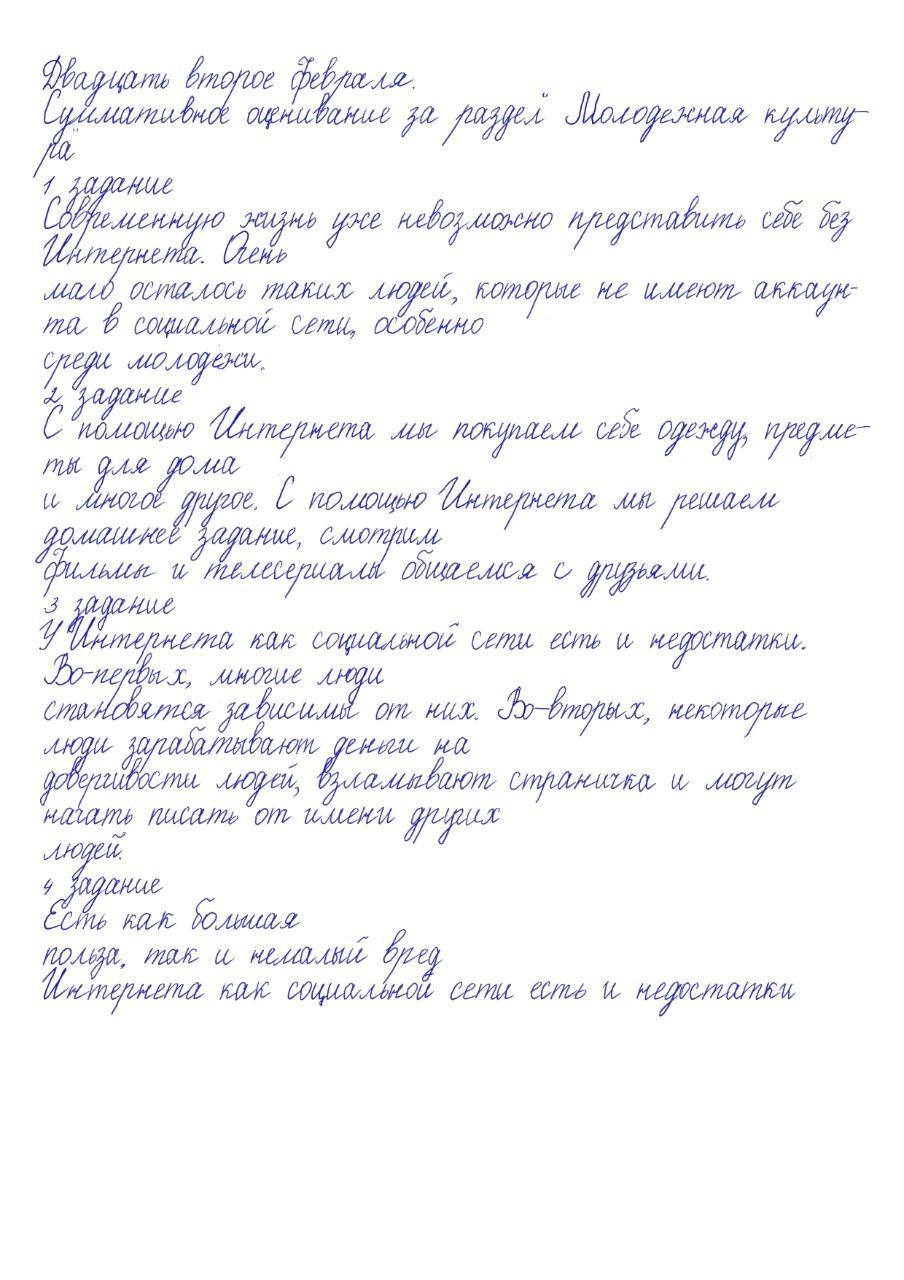 Двадцать второе февраля.
Суммативное оценивание за раздел "Молодежная культу-
ра"
1 задание
Современную жизнь уже невозможно представить себе без
Интернета. Очень
мало осталось таких людей, которые не имеют аккаун-
та в социальной сети, особенно
среди молодежи.
2 задание
С помощью Интернета мы покупаем себе одежду, предме-
ты для дома
и многое другое. С помощью Интернета мы решаем
домашнее задание, смотрим
фильмы и телесериалы общаемся с друзьями.
3 задание
У Интернета как социальной сети есть и недостатки.
Во-первых, многие люди
становятся зависимы от них. Во-вторых, некоторые
люди зарабатывают деньги на
доверчивости людей, взламывают страничка и могут
начать писать от имени других
людей.
4 задание
Есть как большая
польза, так и немалый вред
Интернета как социальной сети есть и недостатки